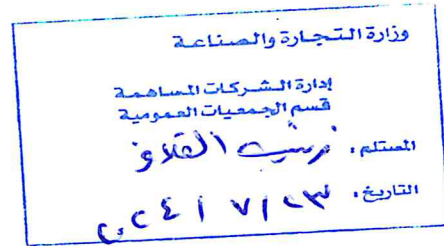 وزارة التجارة والصناعة
إدارة الشركات المساهمة
قسم الجمعيات العمومية
المستلم :
التاريخ : ٢٠٢٤ / ٧ / ٢٣